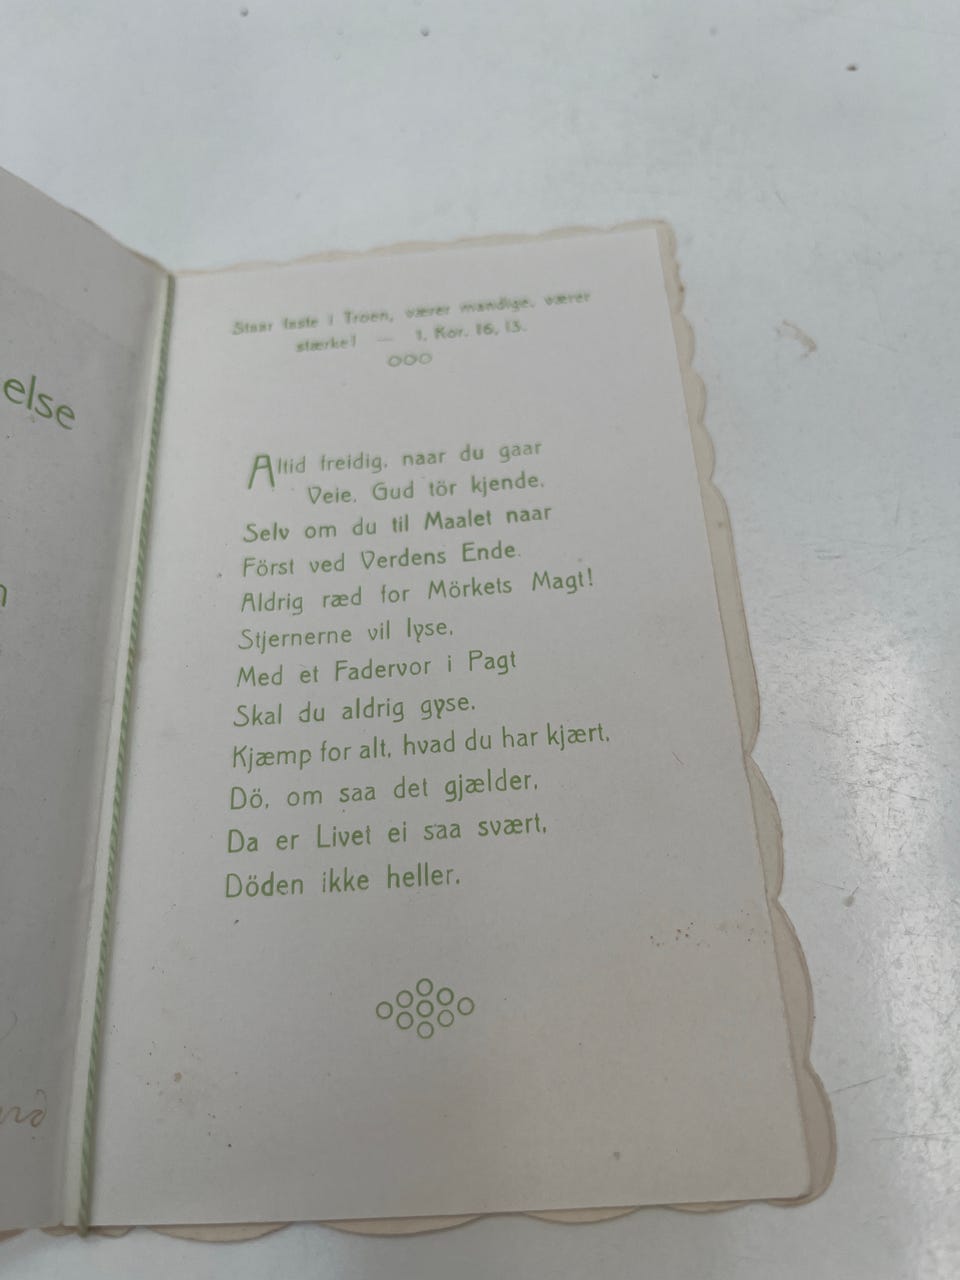 else
Staar faste i Troen, værer mandige, værer
stærke! — 1. Kor. 16, 13.
Altid freidig, naar du gaar
Veie, Gud tör kjende,
Selv om du til Maalet naar
Först ved Verdens Ende.
Aldrig ræd for Mörkets Magt!
Stjernerne vil lyse,
Med et Fadervor i Pagt
Skal du aldrig gyse.
Kjæmp for alt, hvad du har kjært,
Dö, om saa det gjælder,
Da er Livet ei saa svært,
Döden ikke heller.